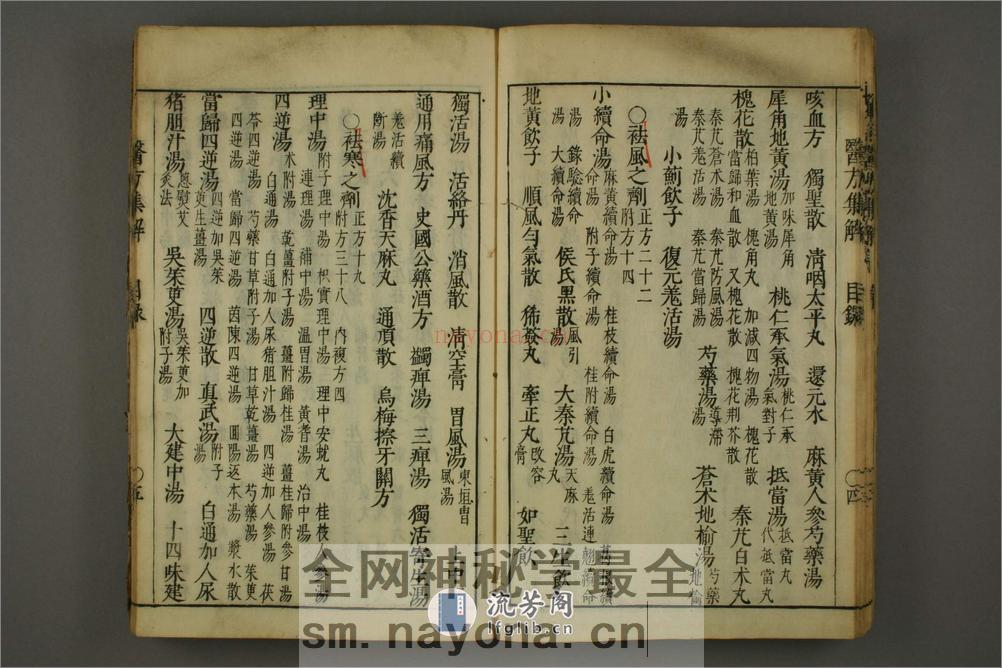 醫方集解 目錄 四
咳血方 獨聖散 清咽太平丸 還元水 麻黃人參芍藥湯
犀角地黃湯 加味犀角地黃湯 桃仁承氣湯 桃仁承氣對子 抵當湯 抵當丸 代抵當丸
槐花散 柏葉湯 槐角丸 加減四物湯 槐花散 當歸和血散 又槐花散 槐花荆芥散 秦艽白朮丸
秦艽蒼朮湯 秦艽防風湯 秦艽羌活湯 秦艽當歸湯 芍藥湯 導滯湯 蒼朮地榆湯 芍藥地榆湯
小薊飲子 復元羌活湯
○祛風之劑 正方二十二 附方十四
小續命湯 麻黃續命湯 桂枝續命湯 白虎續命湯 葛根續命湯 附子續命湯 桂附續命湯 羌活連翹續命湯 大續命湯 錄驗續命湯 侯氏黑散 風引湯 大秦艽湯 天麻丸 三生飲
地黃飲子 順風勻氣散 豨薟丸 牽正丸 改容膏 如聖飲
獨活湯 活絡丹 消風散 清空膏 胃風湯 東垣胃風湯 上中下
通用痛風方 史國公藥酒方 蠲痹湯 三痹湯 獨活寄生湯
羌活續斷湯 沈香天麻丸 通頂散 烏梅擦牙關方
○祛寒之劑 正方十九 附方三十八 內複方四
理中湯 附子理中湯 枳實理中湯 理中安蚘丸 桂枝人參湯 連理湯 補中湯 溫胃湯 黃耆湯 治中湯
四逆湯 朮附湯 乾薑附子湯 薑附歸桂湯 薑桂歸附參甘湯 白通湯 白通加人尿猪膽汁湯 四逆加人參湯 茯苓四逆湯 芍藥甘草附子湯 甘草乾薑湯 芍藥湯 茱萸四逆湯 當歸四逆湯 茵陳四逆湯 回陽返本湯 漿水散
當歸四逆湯 四逆加吳茱萸生薑湯 四逆散 真武湯 附子湯 白通加人尿
猪胆汁湯 葱熨艾灸法 吳茱萸湯 吳茱萸加附子湯 大建中湯 十四味建
醫方集解 目錄 五
nayona.com
全网神秘学最全
sm.nayona.cn
流芳阁
lfglib.cn